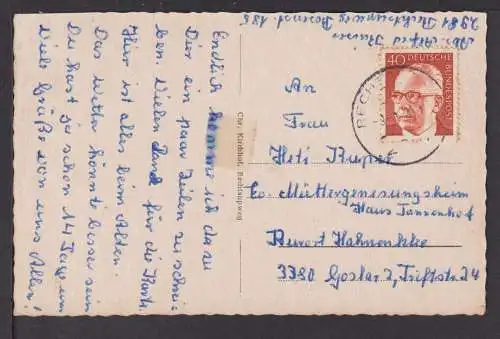 Endlich komme ich dazu
Dir ein paar Zeilen zu schrei-
ben. Vielen Dank für die Karte.
Hier ist alles beim Alten.
Das Wetter könnte besser sein
Du hast ja schon 14 Tage um
Viele Grüße von uns Allen!
Chr. Kirchhof, Rechtsupweg
Abs. Alfred
2981 Rechtsupweg
40
DEUTSCHE
BUNDESPOST
RECHT
An
Frau
Heti Ruper
Co. Müttergenesungsheim
Haus Tannenhof
Kurort Hahnenklee
3380 Goslar 2, Triftstr. 24